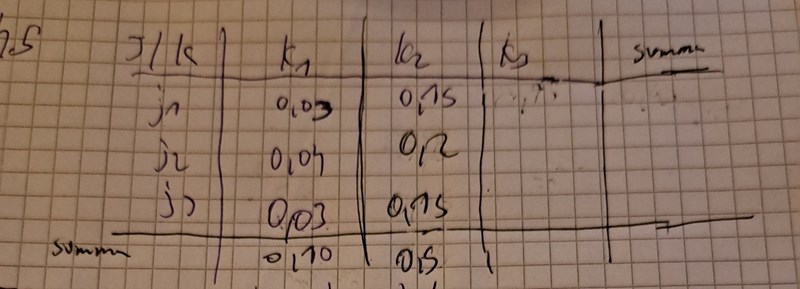 J/K K1 K2 K3 Summe
j1 0,03 0,15
j2 0,04 0,2
j3 0,03 0,15
Summe 0,10 0,5